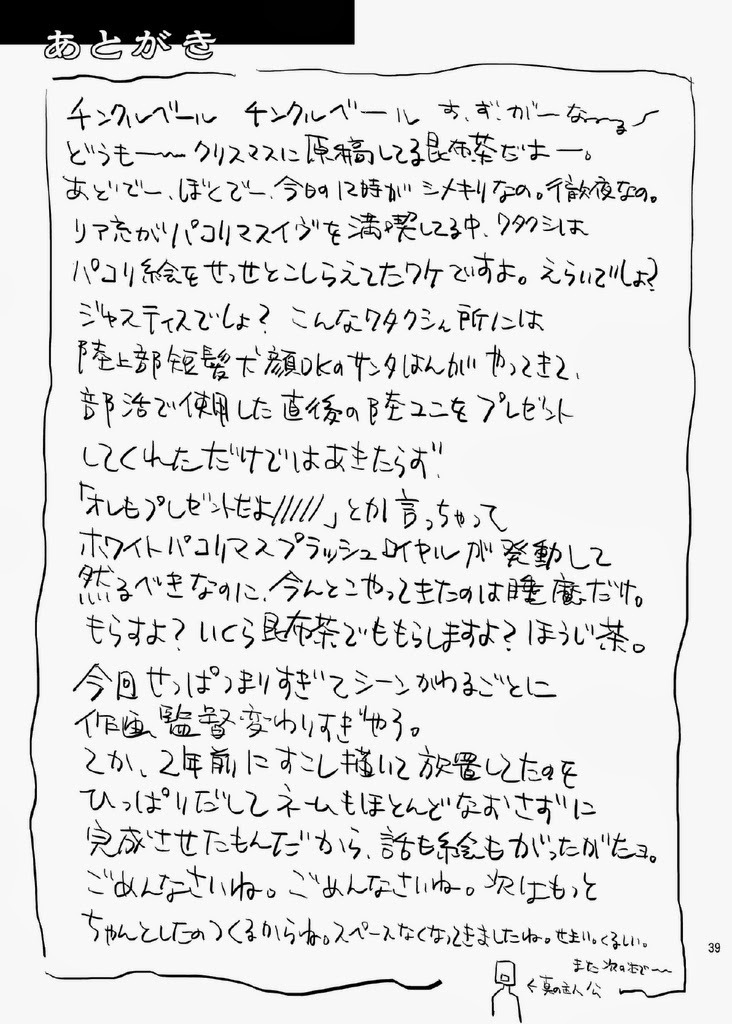 あとがき
チンクルベール チンクルベール す、ず、が、なーーる〜
どうも〜〜クリスマスに原稿してる昆布茶だおー。
あどでー、ぼくでー、今日の12時がシメキリなの。行徹夜なの。
リア充がパコリマスイヴを満喫してる中、ワタクシは
パコリ絵をせっせとこしらえてたワケですよ。えらいでしょ?
ジャスティスでしょ? こんなワタクシん所には
陸上部短髪犬顔DKのサンタはんがやってきて、
部活で使用した直後の陸ユニをプレゼント
してくれただけではあきたらず、
「オレもプレゼントだよ/////」とか言っちゃって
ホワイトパコリマスプラッシュロイヤルが発動して
然るべきなのに、今んとこやってきたのは睡魔だけ。
もらすよ? いくら昆布茶でももらしますよ? ほうじ茶。
今回せっぱつまりすぎてシーンかわるごとに
作画監督変わりすぎやろ。
てか、2年前にすこし描いて放置してたのを
ひっぱりだしてネームもほとんどなおさずに
完成させたもんだから、話も絵もがったがたヨ。
ごめんなさいね。ごめんなさいね。次はもっと
ちゃんとしたのつくるからね。スペースなくなってきましたね。せまい。くるしい。
また次の本で〜〜
←真の主人公
39